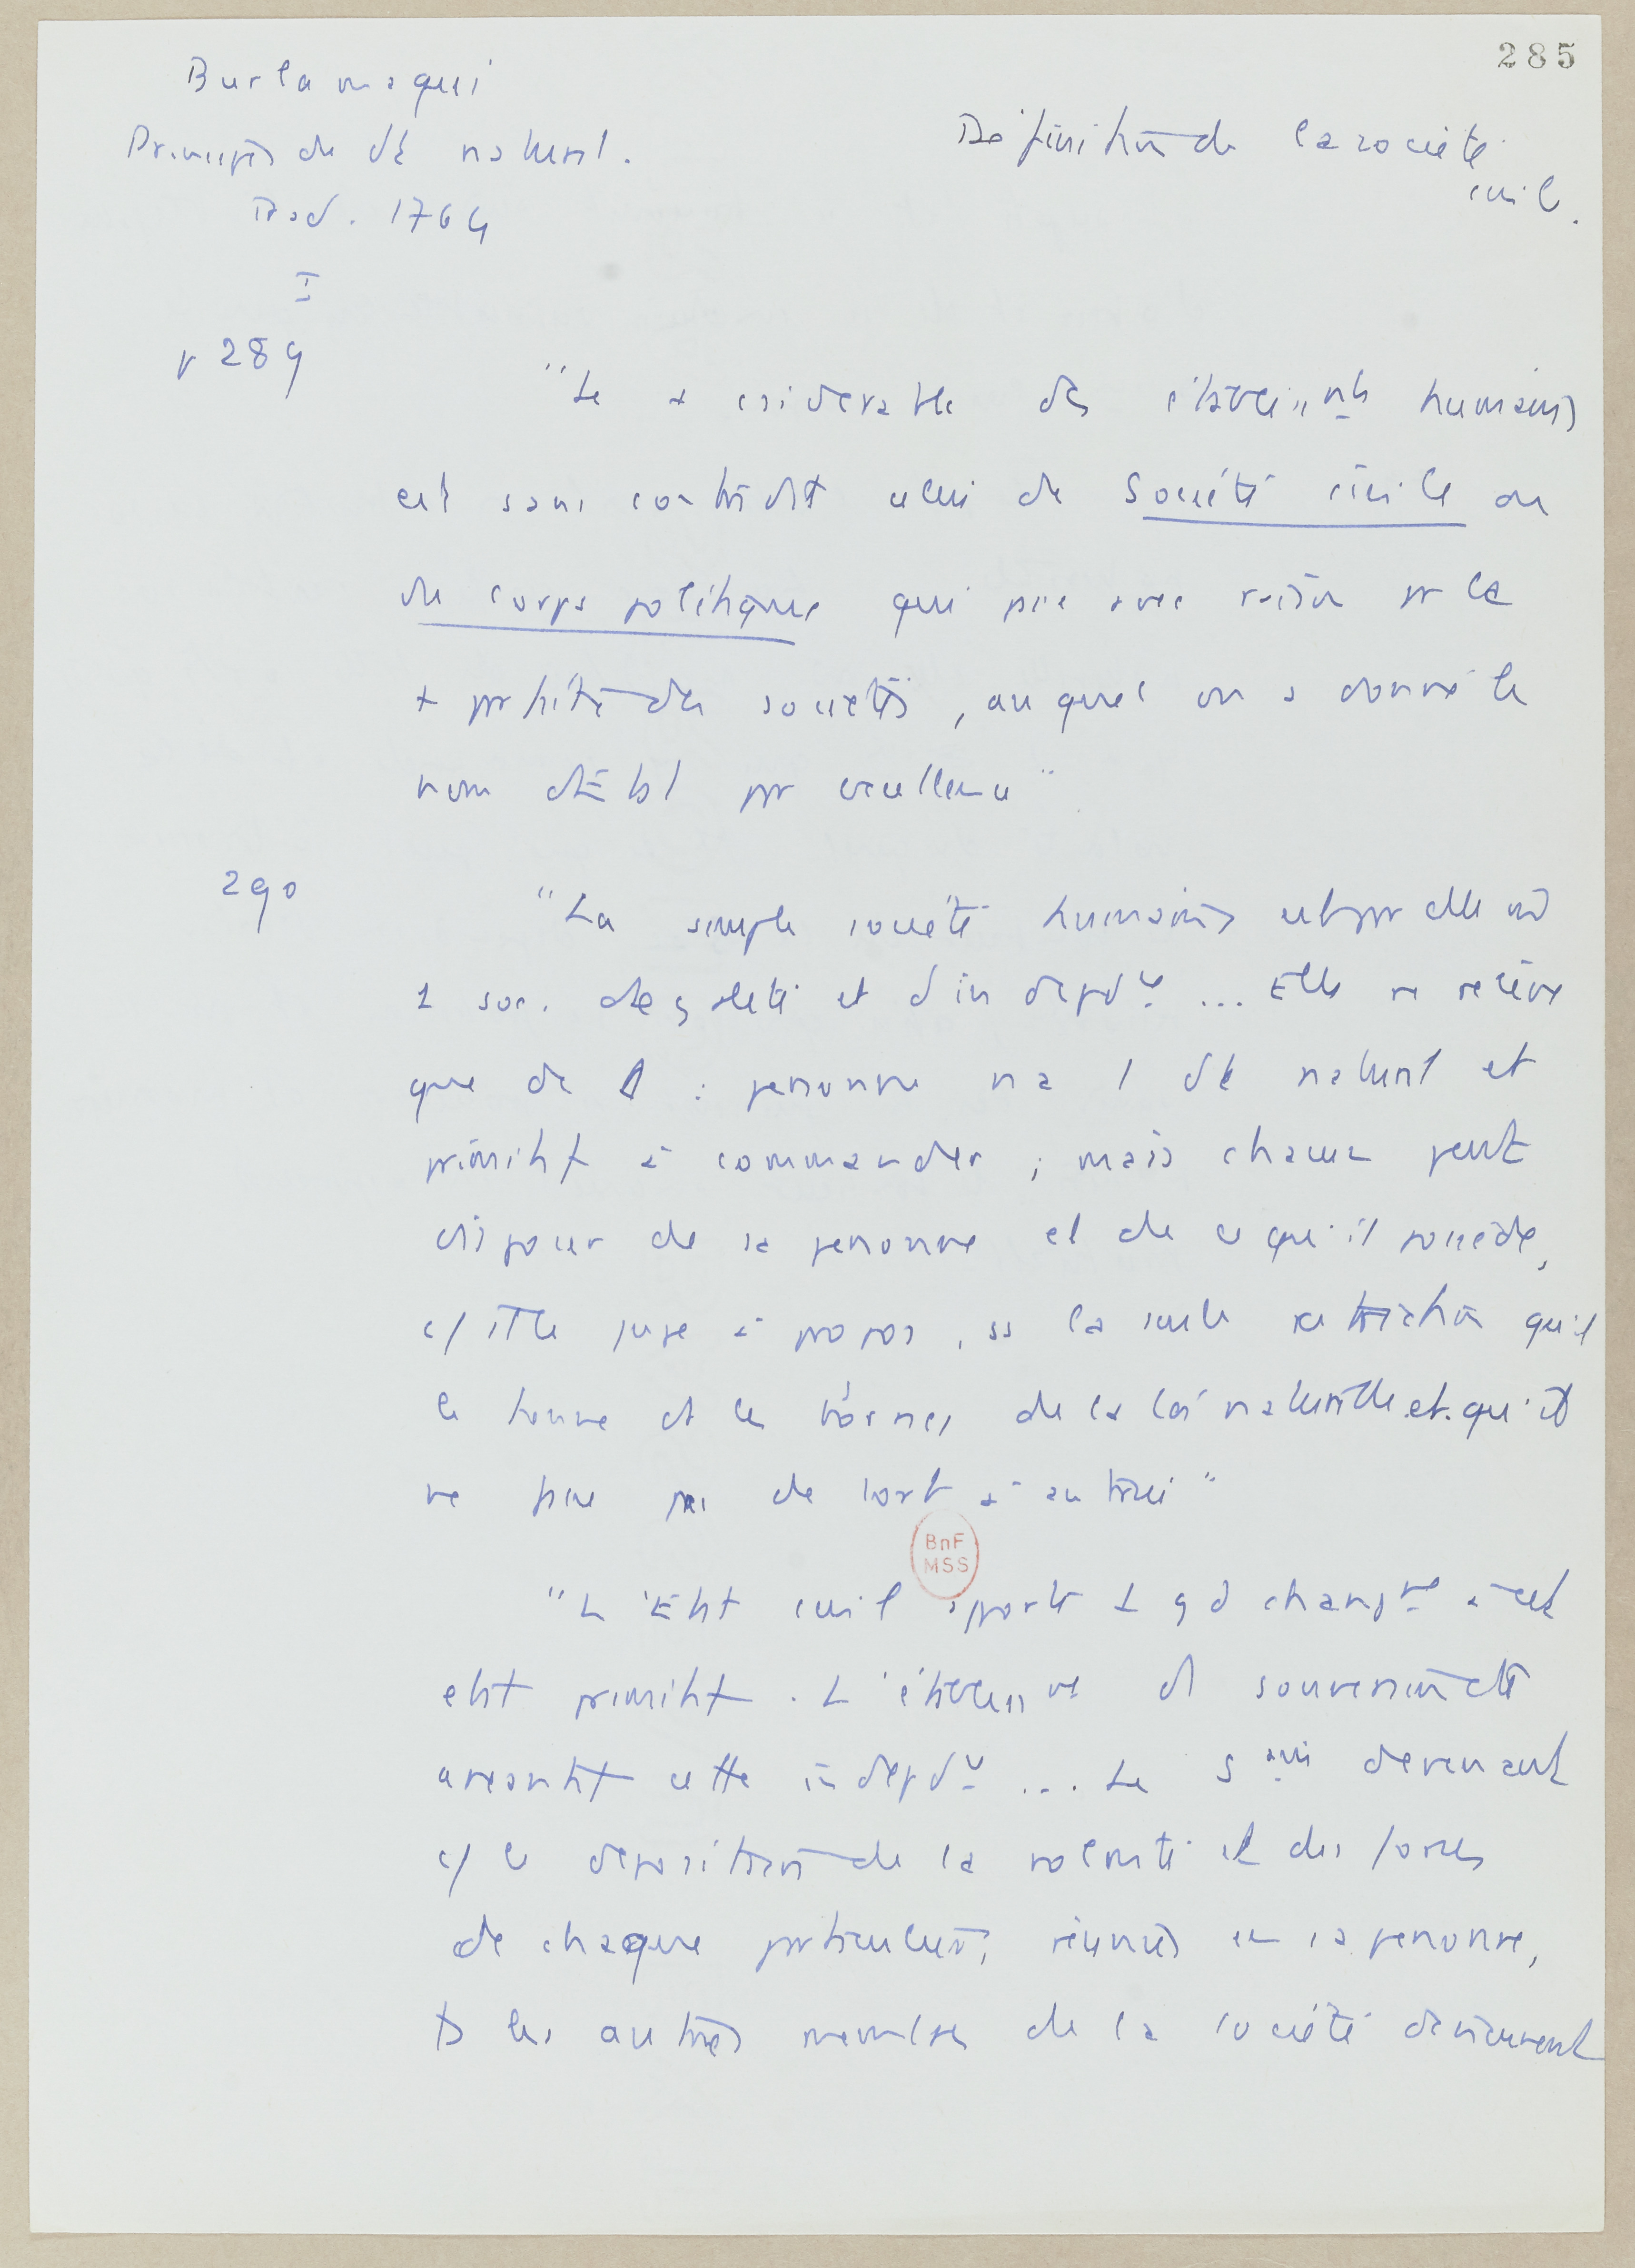 285
Burlamaqui
Principes du dt naturel.
Trad. 1764
I
Définition de la société
civile.
p 289
"Le + considérable des établissmts humains
est sans contredit celui de Société civile ou
du corps politique qui passe avec raison pr la
+ parfaite des sociétés, auquel on a donné le
nom d'État par excellence"
290
"La simple société humaine est par elle même
1 soc. d'égalité et d'indépdce ... Elle ne relève
que de : personne n'a 1 dt naturel et
primitif à commander ; mais chacun peut
disposer de sa personne et de ce qu'il possède,
c/ il le juge à propos, ss la seule restriction qu'il
se tienne ds les bornes de la loi naturelle et qu'il
ne fasse pas de tort à autrui"
BnF
MSS
"L'État civil apporte 1 gd changmt à cet
état primitif. L'établissmt d souveraineté
anéantit cette indépdce ... Le Souain devenant
c/ le dépositaire de la volonté et des forces
de chaque particulier, réunies en sa personne,
ts les autres membres de la société deviennent